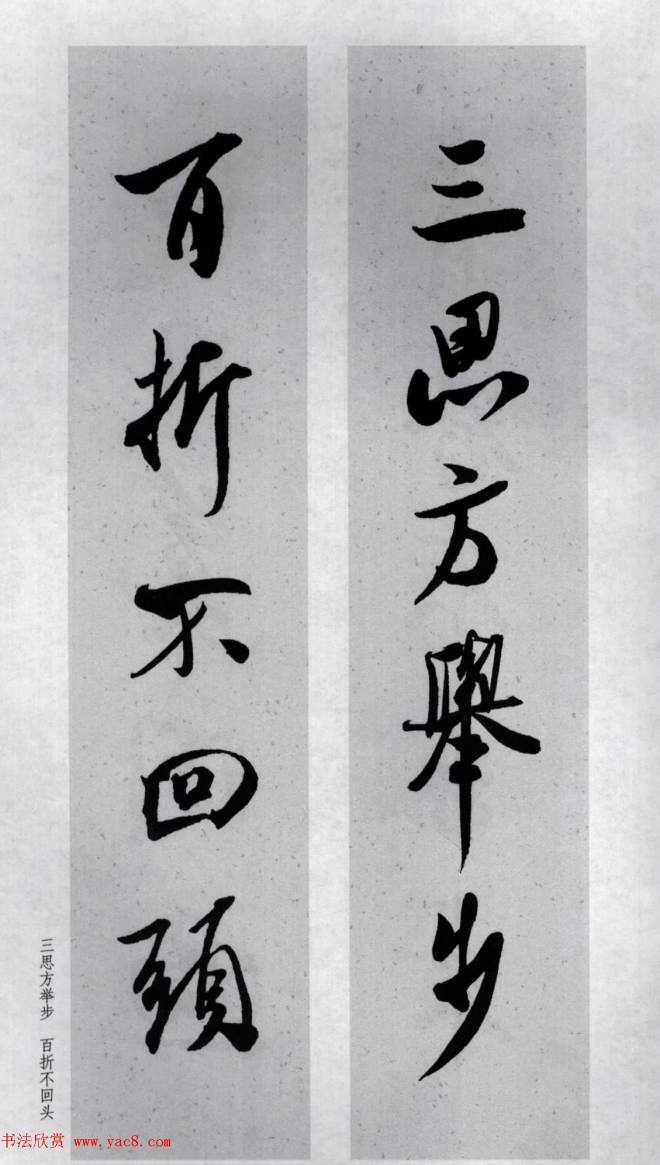 三思方舉步
百折不回頭
三思方举步 百折不回头
书法欣赏 www.yac8.com